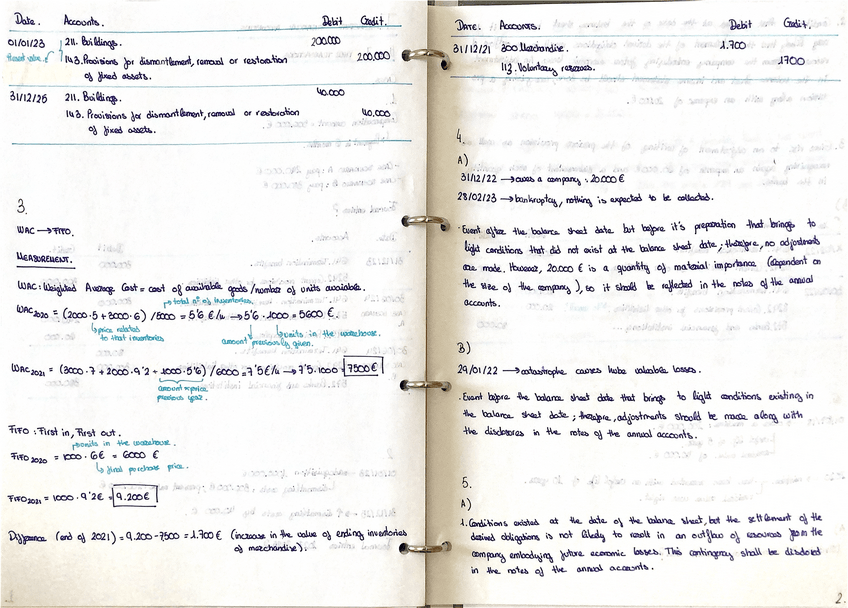 Date. Accounts. Debit Credit.
01/01/23 211. Buildings. 200.000
Present value. 143. Provisions for dismantlement, removal or restoration 200.000
of fixed assets.
31/12/25 211. Buildings. 40.000
143. Provisions for dismantlement, removal or restoration 40.000
of fixed assets.
3.
WAC → FIFO.
MEASUREMENT.
WAC: Weighted Average Cost = cost of available goods / number of units available.
total nº of inventories.
WAC2020 = (2000·5 + 3000·6) / 5000 = 5'6 €/u → 5'6 · 1000 = 5600 €.
price related units in the warehouse.
to that inventories amount previously given.
WAC2021 = (3000·7 + 2000·9'2 + 1000·5'6) / 6000 = 7'5 €/u → 7'5·1000 = 7500 €
amount + price
previous year.
FIFO: First in, First out.
units in the warehouse.
FIFO2020 = 1000 · 6€ = 6000 €
final purchase price.
FIFO2021 = 1000 · 9'2€ = 9.200 €
Difference (end of 2021) = 9.200 - 7500 = 1.700 € (increase in the value of ending inventories
of merchandise).
DATE. Accounts. Debit Credit.
31/12/21 300 Merchandise. 1.700
113. Voluntary reserves. 1700
4.
A)
31/12/22 → owes a company: 20.000 €
28/02/23 → bankruptcy, nothing is expected to be collected.
· Event after the balance sheet date but before it's preparation that brings to
light conditions that did not exist at the balance sheet date; therefore, no adjustments
are made. However, 20.000 € is a quantity of material importance (dependent on
the size of the company), so it should be reflected in the notes of the annual
accounts.
B)
29/01/22 → catastrophe causes huge valuable losses.
· Event before the balance sheet date that brings to light conditions existing in
the balance sheet date; therefore, adjustments should be made along with
the disclosures in the notes of the annual accounts.
5.
A)
1. Conditions existed at the date of the balance sheet, but the settlement of the
desired obligations is not likely to result in an outflow of resources from the
company embodying future economic losses. This contingency shall be disclosed
in the notes of the annual accounts.
2.